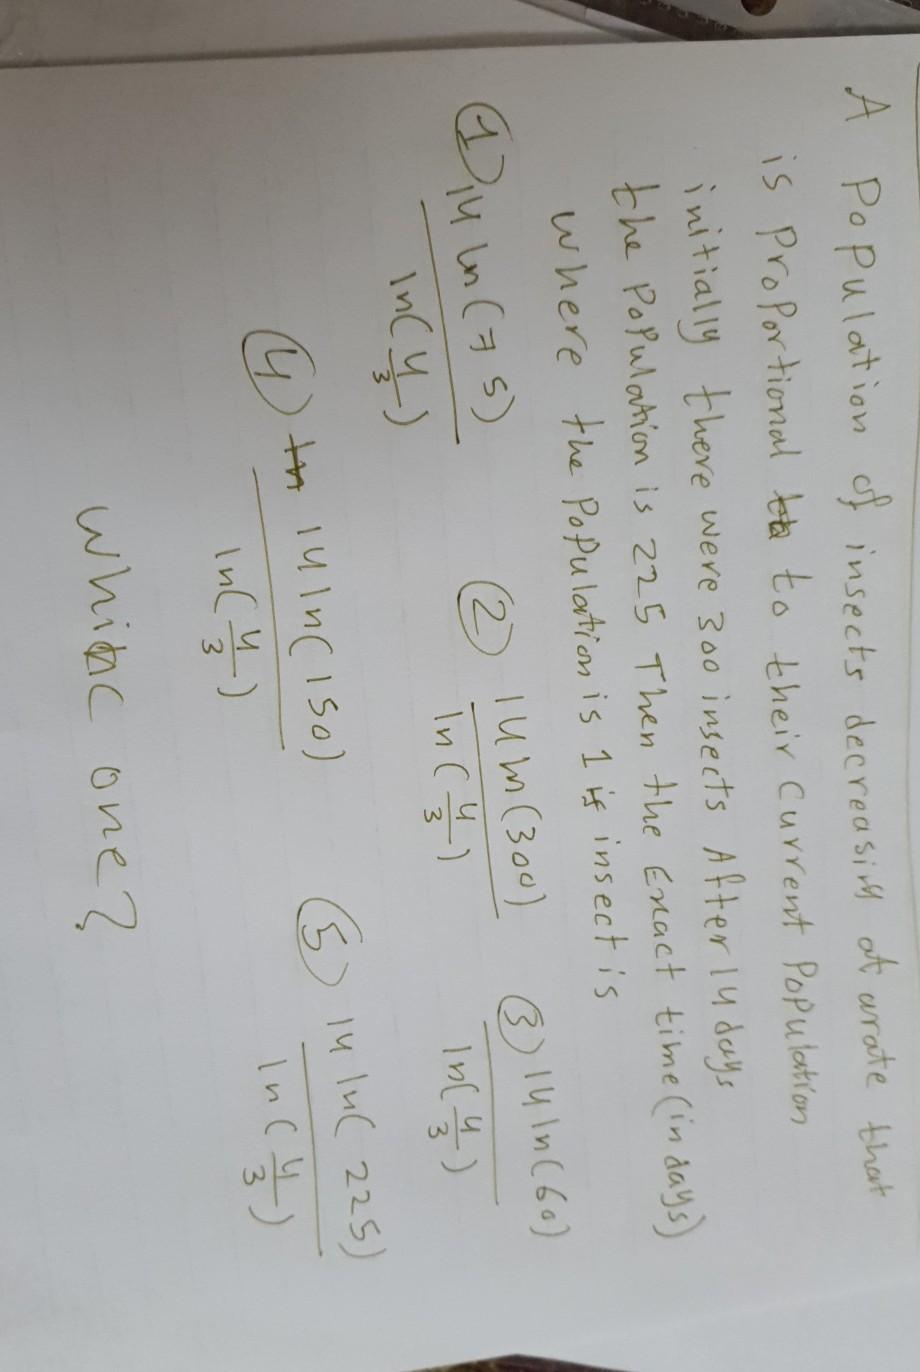 A Population of insects decreasing at a rate that
is proportional to their current Population
initially there were 300 insects After 14 days
the Population is 225 Then the Exact time (in days)
where the Population is 1 insect is
① 14 ln(75) / ln(4/3) ② 14 ln(300) / ln(4/3) ③ 14 ln(60) / ln(4/3)
④ 14 ln(150) / ln(4/3) ⑤ 14 ln(225) / ln(4/3)
Which one?